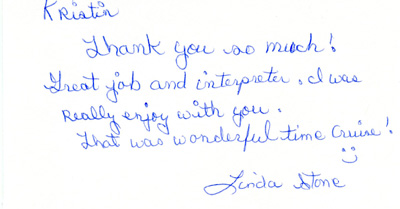 Kristin
Thank you so much!
Great job and interpreter. I was
really enjoy with you.
That was wonderful time Cruise!
Linda Stone